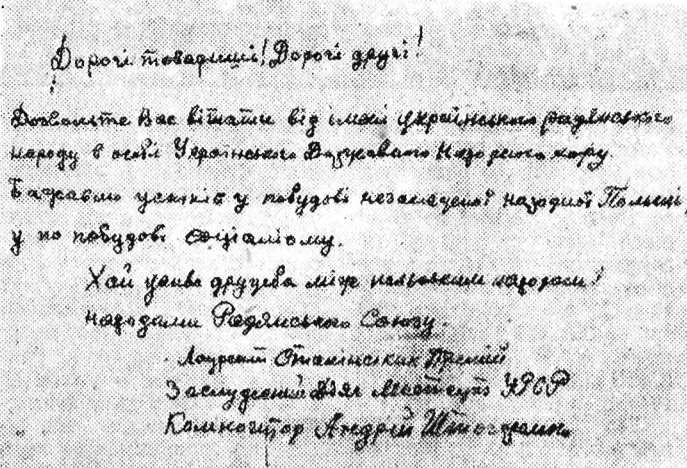 Дорогі товариші! Дорогі друзі!
Дозвольте Вас вітати від імені українського радянського
народу в особі Українського Державного Народного хору.
Бажаємо успіхів у побудові незалежної народної Польщі,
у по побудові соціалізму.
Хай живе дружба між польським народом і
народами Радянського Союзу.
Лауреат Сталінських Премій
Заслужений діяч Мистецтв УРСР
Композитор Андрій Штогаренко